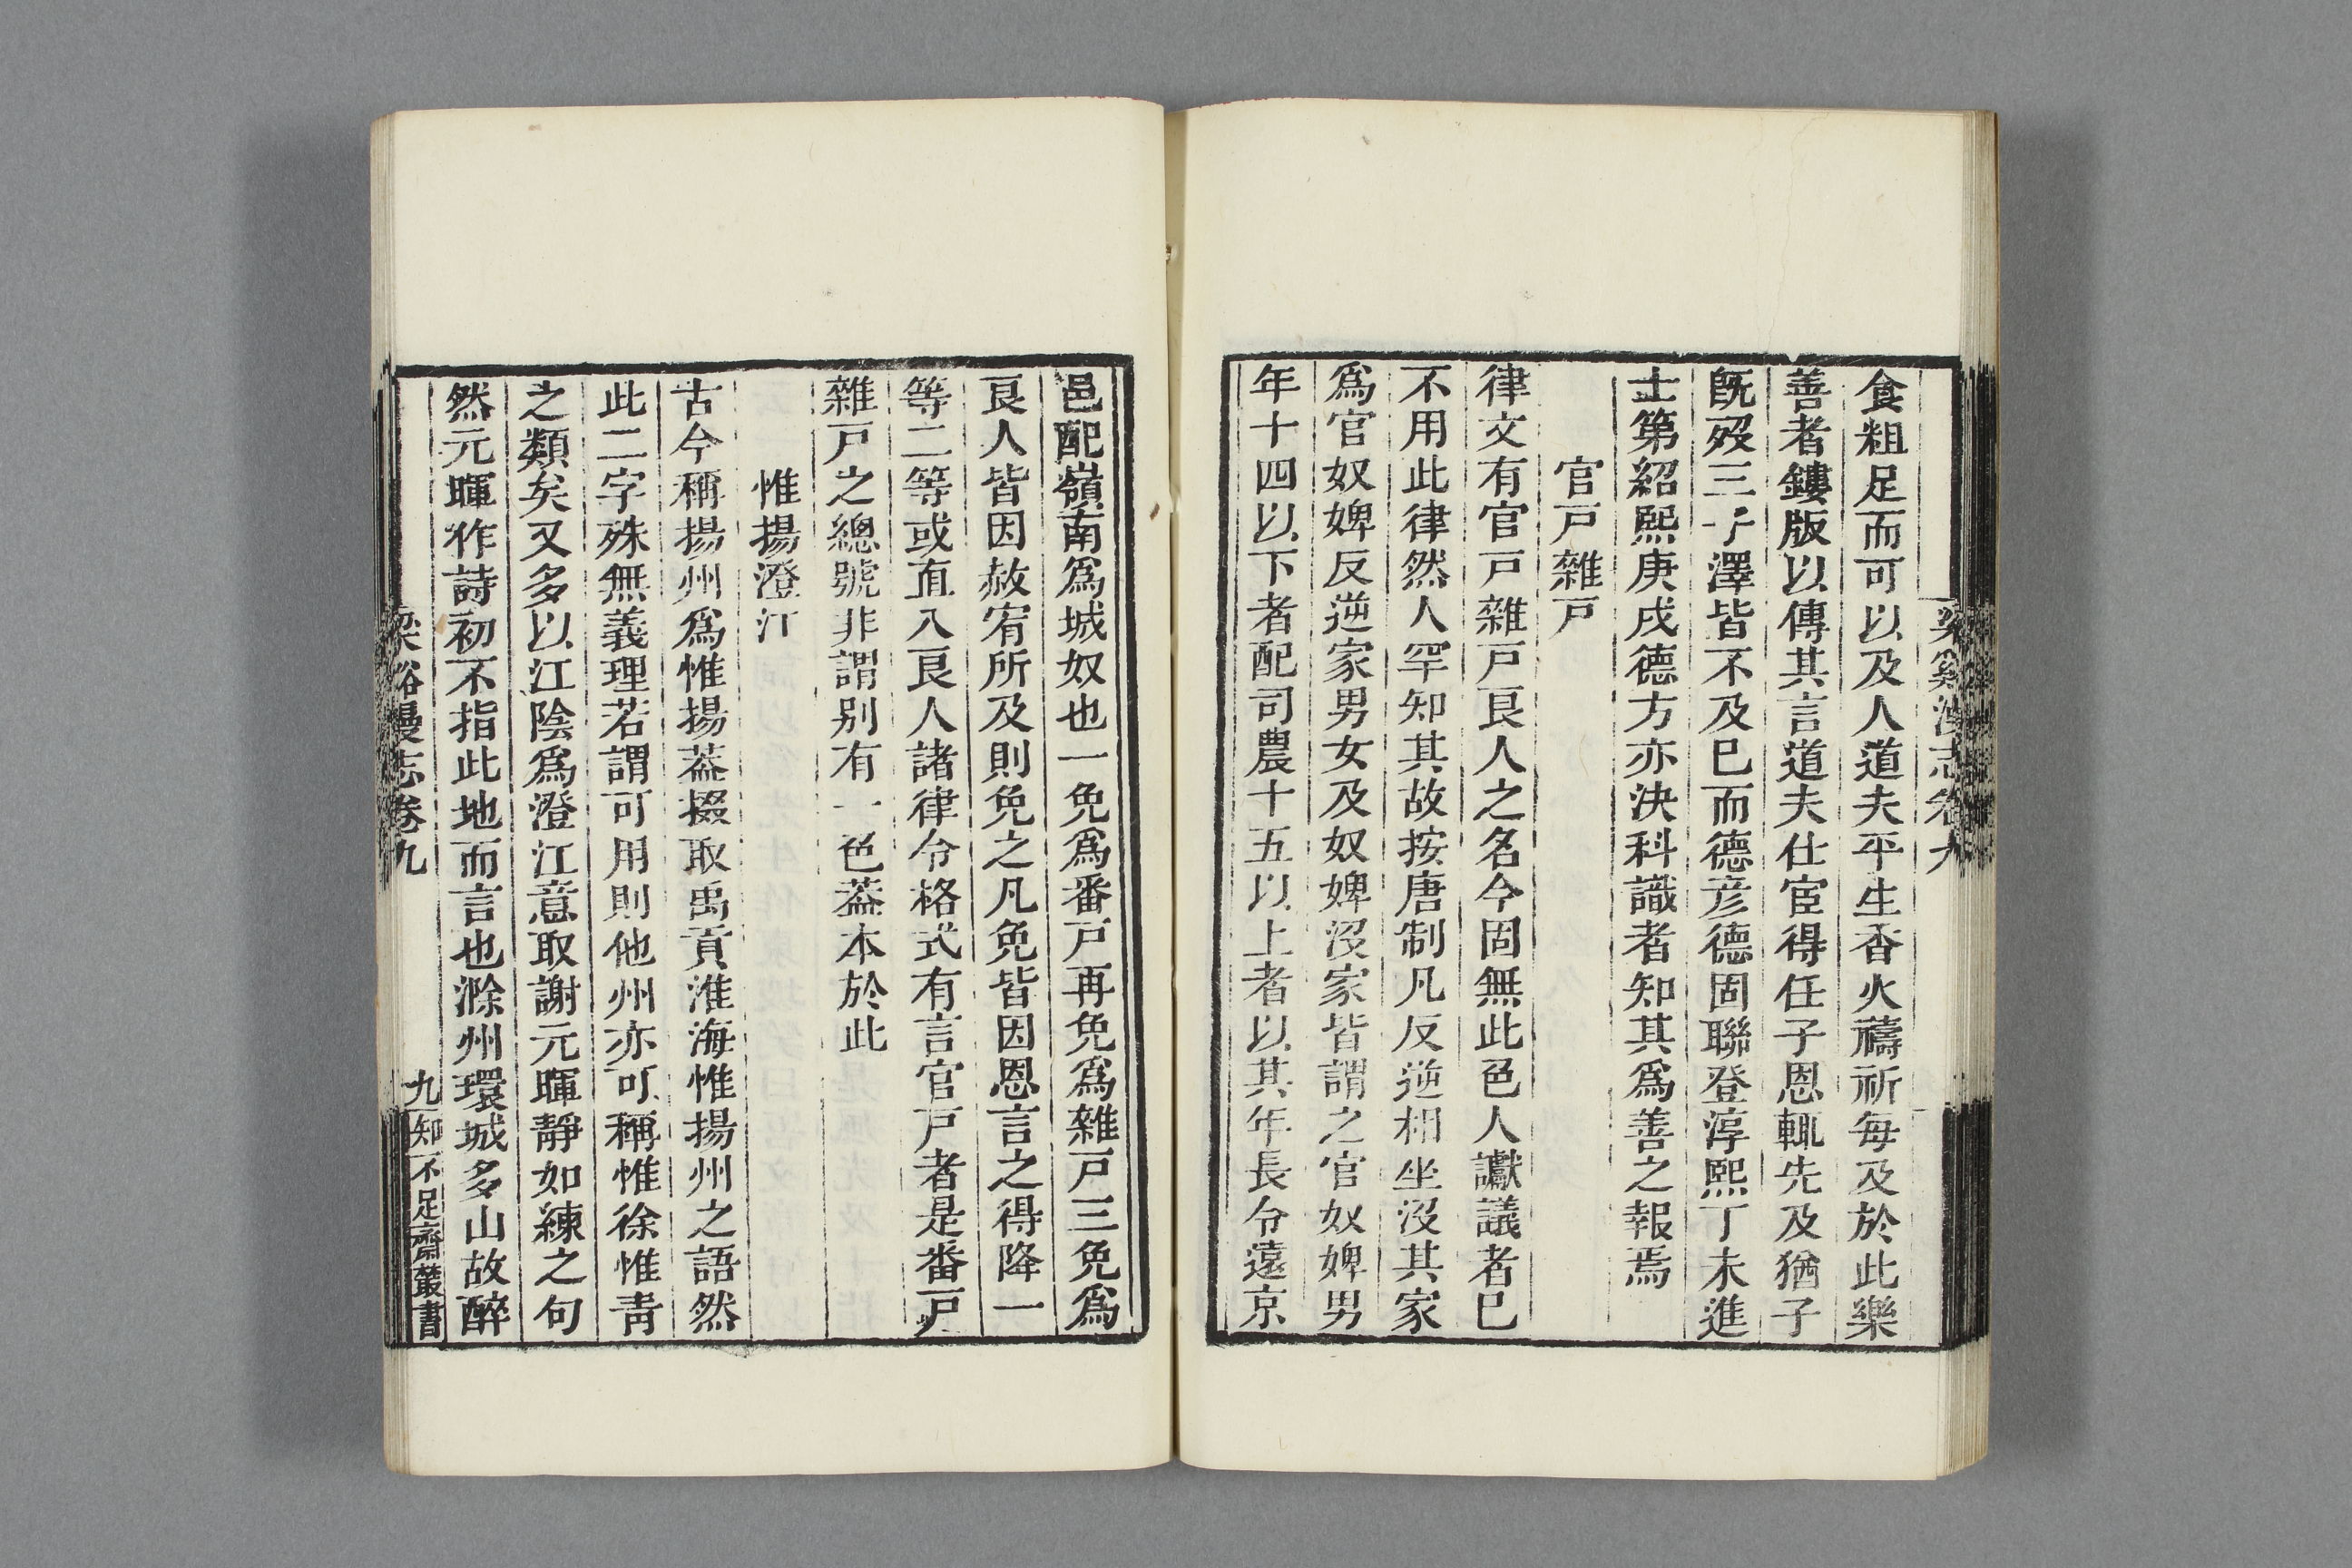 梁谿漫志卷九
食粗足而可以及人道夫平生香火禱祈每及於此樂
善者鏤版以傳其言道夫仕宦得任子恩輒先及猶子
既歿三子澤皆不及巳而德彦德固聯登淳熙丁未進
士第紹熙庚戌德方亦決科識者知其爲善之報焉
官戸雜戸
律文有官戸雜戸良人之名今固無此色人讞議者巳
不用此律然人罕知其故按唐制凡反逆相坐沒其家
爲官奴婢反逆家男女及奴婢沒家皆謂之官奴婢男
年十四以下者配司農十五以上者以其年長令遠京
邑配嶺南爲城奴也一免爲番戸再免爲雜戸三免爲
良人皆因赦宥所及則免之凡免皆因恩言之得降一
等二等或直入良人諸律令格式有言官戸者是番戸
雜戸之總號非謂别有一色葢本於此
惟揚澄江
古今稱揚州爲惟揚葢掇取禹貢淮海惟揚州之語然
此二字殊無義理若謂可用則他州亦可稱惟徐惟青
之類矣又多以江陰爲澄江意取謝元暉靜如練之句
然元暉作詩初不指此地而言也滁州環城多山故醉
梁谿漫志卷九
九
知不足齋叢書